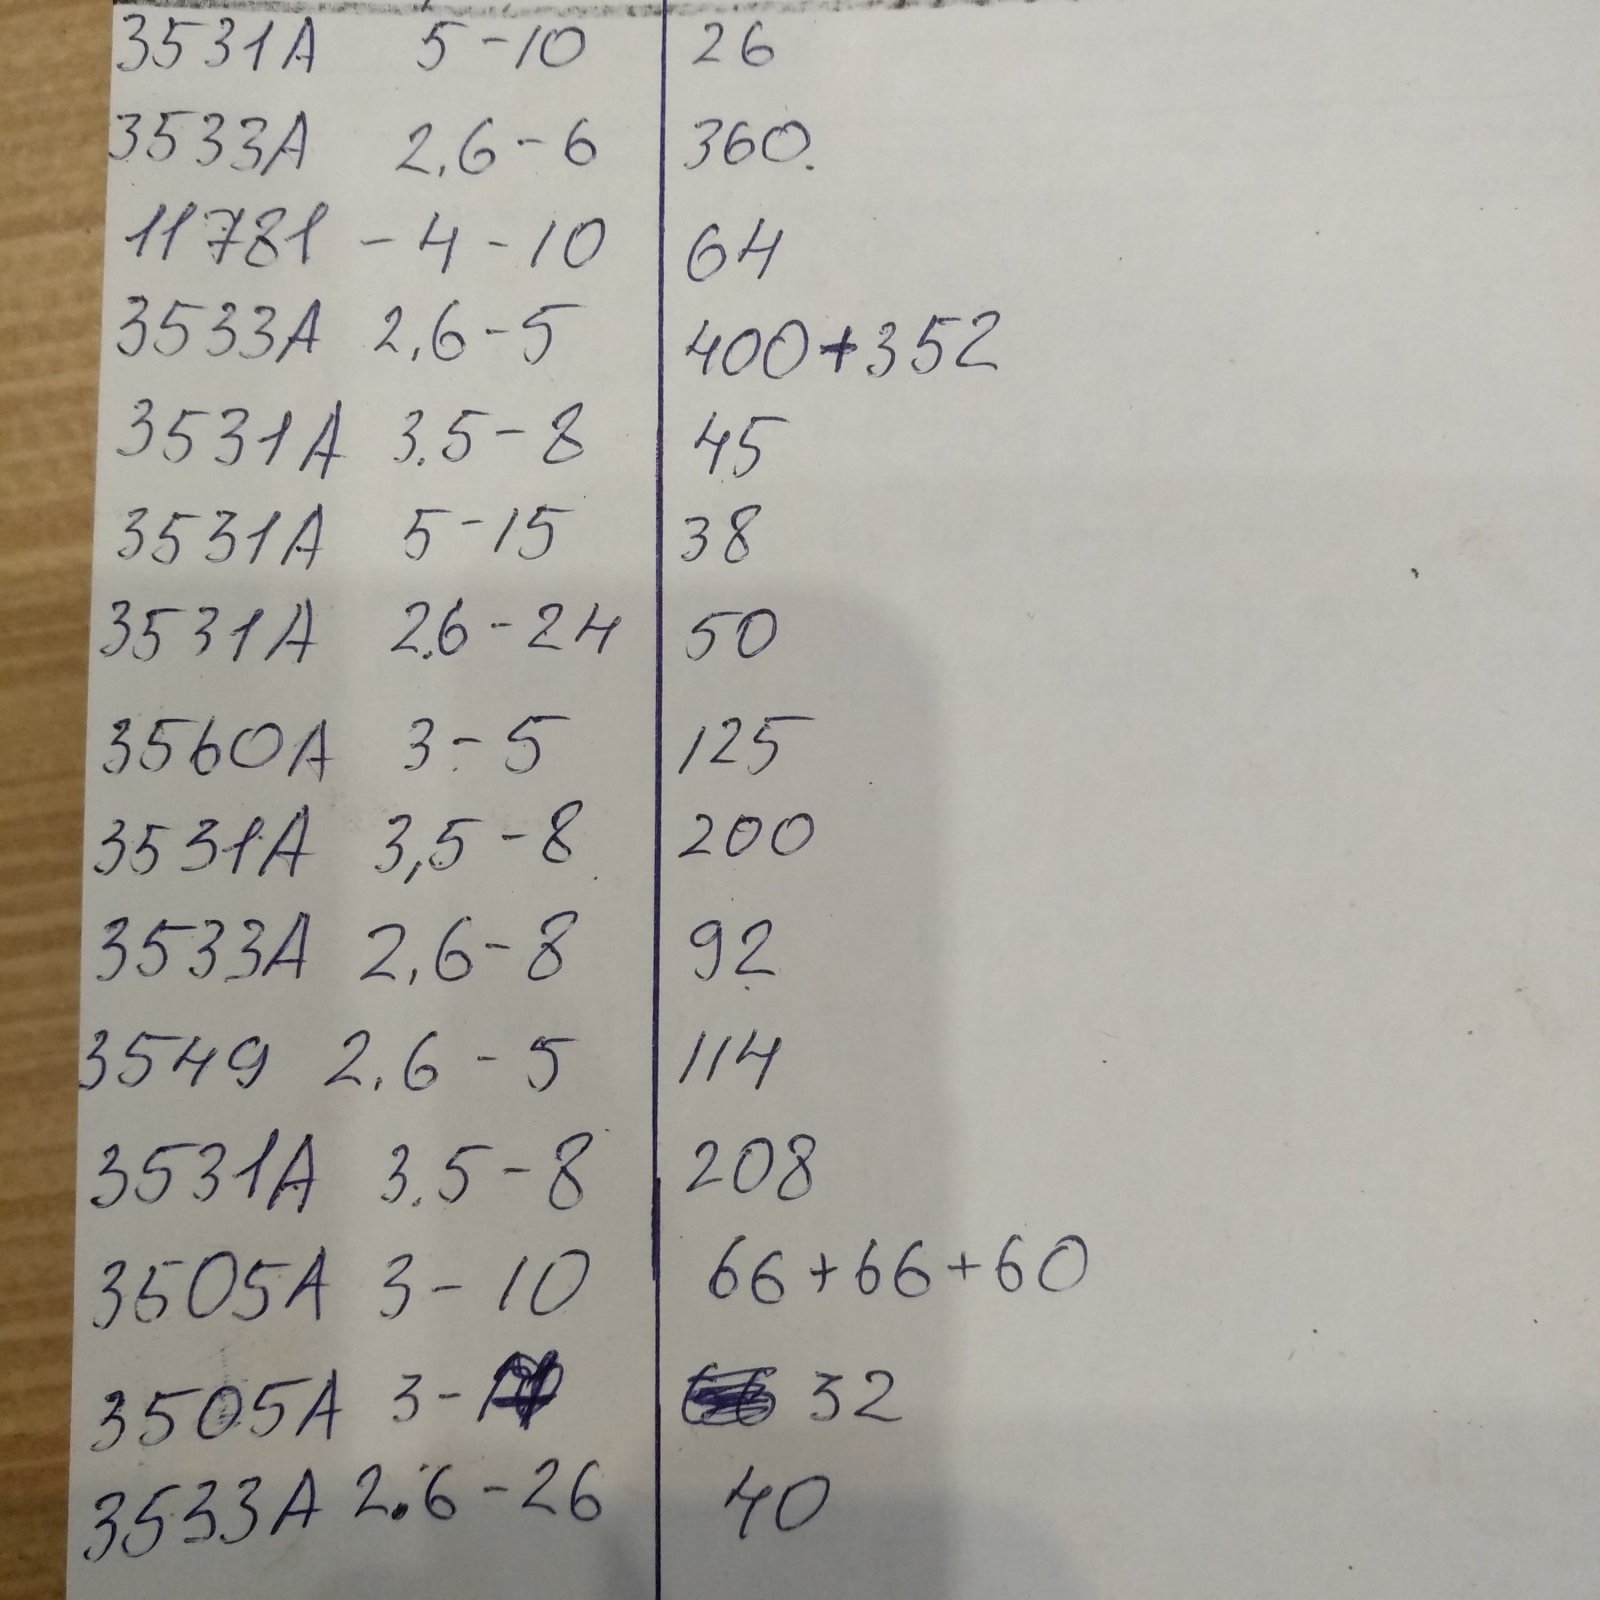 3531A 5-10 26
3533A 2,6-6 360.
11781 - 4 - 10 64
3533A 2,6-5 400+352
3531A 3.5-8 45
3531A 5-15 38
3531A 2.6-24 50
3560A 3-5 125
3531A 3,5-8 200
3533A 2,6-8 92
3549 2.6-5 114
3531A 3.5-8 208
3505A 3-10 66+66+60
3505A 3- 32
3533A 2.6-26 40